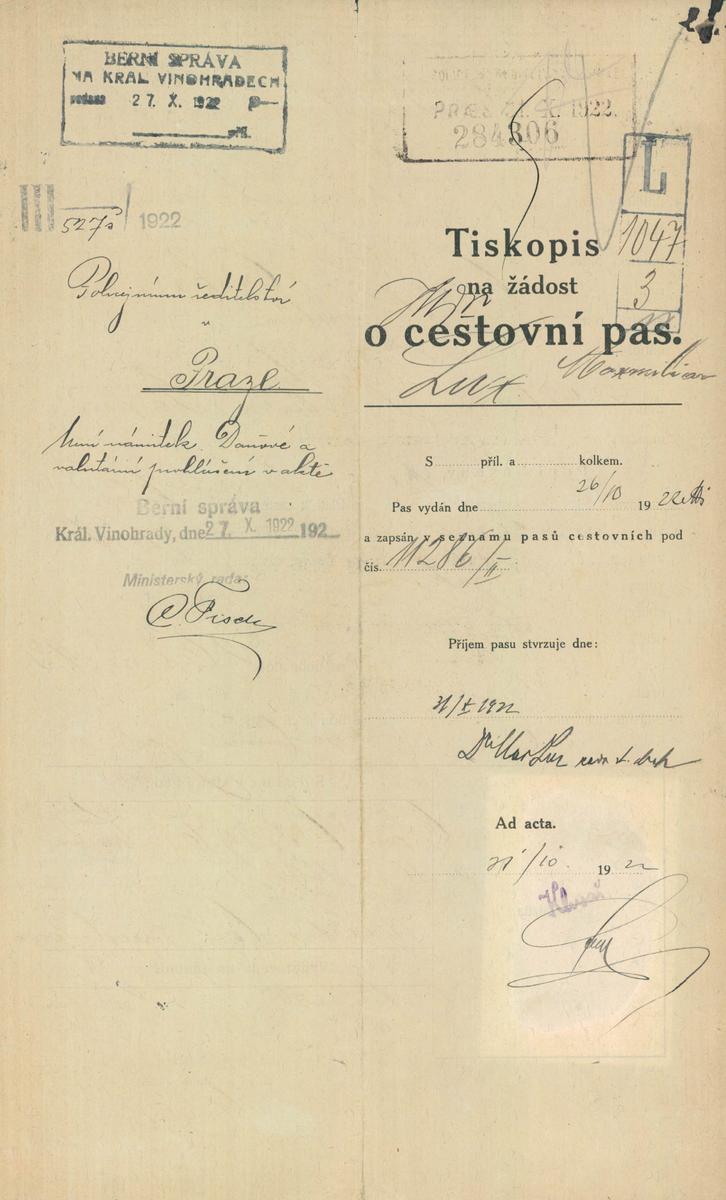 BERNÍ SPRÁVA
NA KRÁL. VINOHRADECH
podáno 27. X. 1922
příl.
III 1922
Policejnímu ředitelství
v
Praze
Není námitek. Daňové a
valutární prohlášení v aktě
Berní správa
Král. Vinohrady, dne 27. X. 1922 192
Ministerský rada:
PRAES 1922.
284806
L
1047
3
Tiskopis
na žádost
o cestovní pas.
Lux Maxmilian
S příl. a kolkem.
Pas vydán dne 26/10 19 22
a zapsán v seznamu pasů cestovních pod
čís. 11286/II
Příjem pasu stvrzuje dne:
31/X 1922
Dr Max Lux
Ad acta.
31/10 19 22